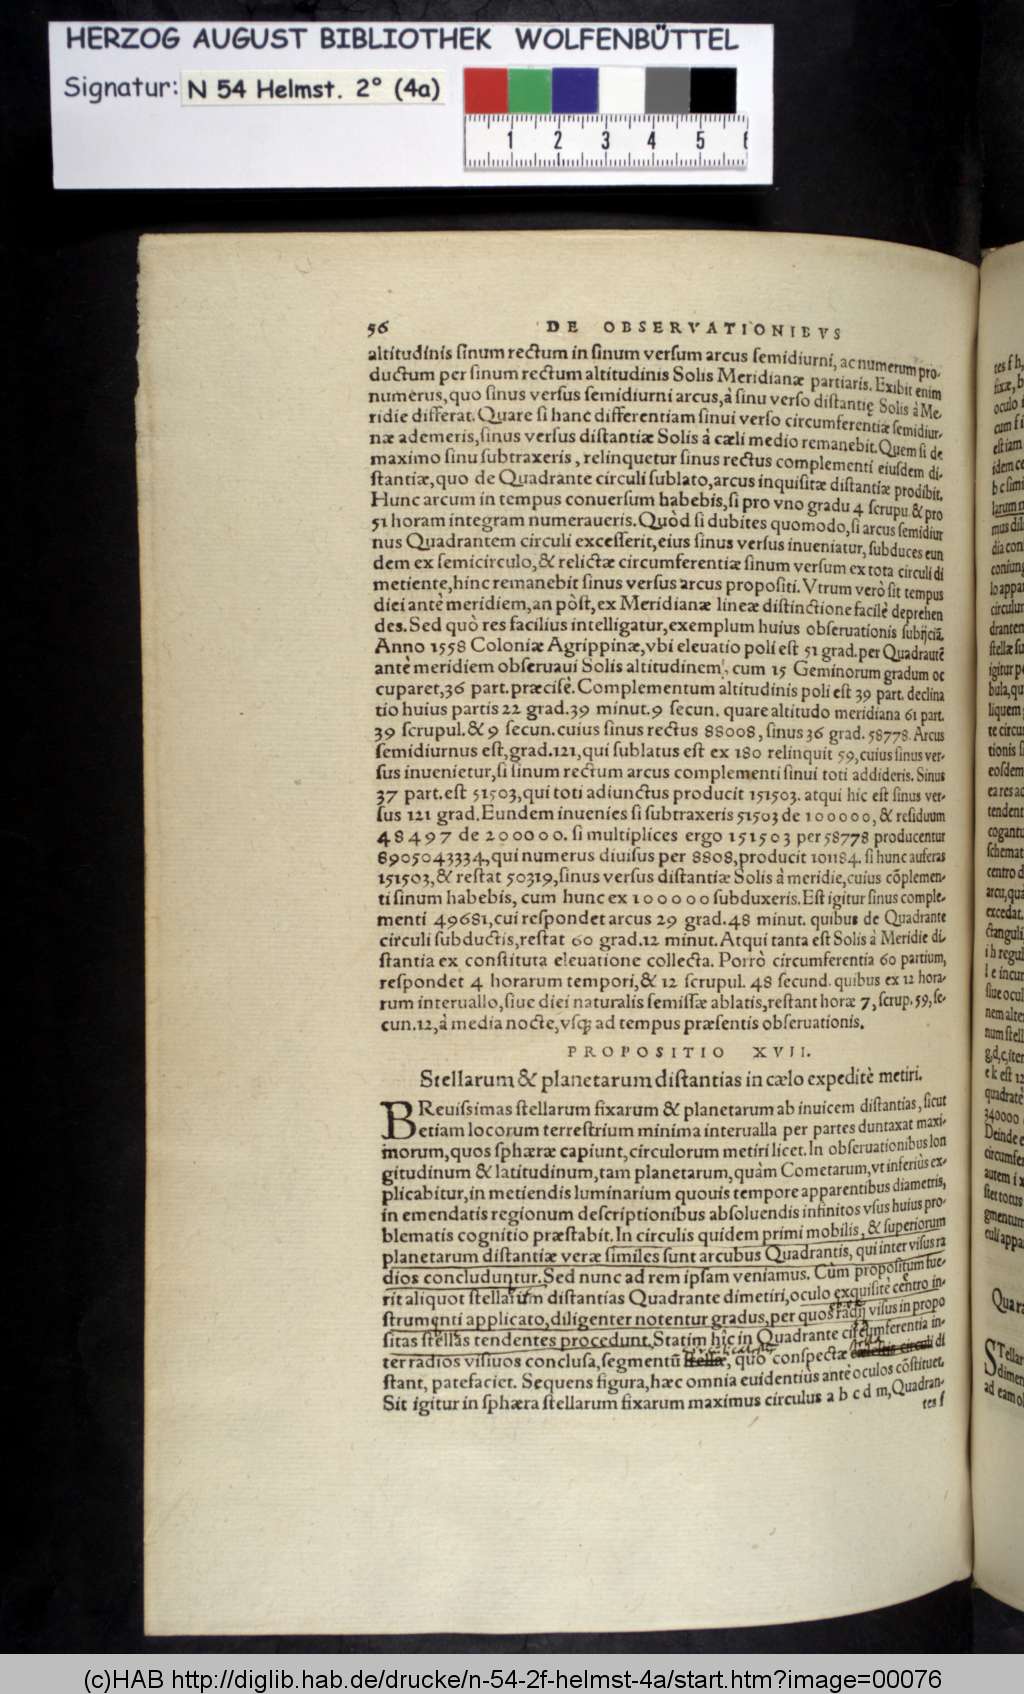 HERZOG AUGUST BIBLIOTHEK WOLFENBÜTTEL
Signatur: N 54 Helmst. 2° (4a)
1 2 3 4 5 6
56 DE OBSERVATIONIBVS
altitudinis sinum rectum in sinum versum arcus semidiurni, ac numerum pro-
ductum per sinum rectum altitudinis Solis Meridianæ partiaris. Exibit enim
numerus, quo sinus versus semidiurni arcus, à sinu verso distantię Solis à Me-
ridie differat. Quare si hanc differentiam sinui verso circumferentiæ semidiur-
næ ademeris, sinus versus distantiæ Solis à cæli medio remanebit. Quem si de
maximo sinu subtraxeris, relinquetur sinus rectus complementi eiusdem di-
stantiæ, quo de Quadrante circuli sublato, arcus inquisitæ distantiæ prodibit.
Hunc arcum in tempus conuersum habebis, si pro vno gradu 4 scrupu. & pro
51 horam integram numeraueris. Quòd si dubites quomodo, si arcus semidiur
nus Quadrantem circuli excesserit, eius sinus versus inueniatur, subduces eun
dem ex semicirculo, & relictæ circumferentiæ sinum versum ex tota circuli di
metiente, hinc remanebit sinus versus arcus propositi. Vtrum verò sit tempus
diei antè meridiem, an pòst, ex Meridianæ lineæ distinctione facilè deprehen
des. Sed quò res facilius intelligatur, exemplum huius obseruationis subijciã.
Anno 1558 Coloniæ Agrippinæ, vbi eleuatio poli est 51 grad. per Quadrantē
antè meridiem obseruaui Solis altitudinem, cum 15 Geminorum gradum oc
cuparet, 36 part. præcisè. Complementum altitudinis poli est 39 part. declina
tio huius partis 22 grad. 39 minut. 9 secun. quare altitudo meridiana 61 part.
39 scrupul. & 9 secun. cuius sinus rectus 88008, sinus 36 grad. 58778. Arcus
semidiurnus est, grad. 121, qui sublatus est ex 180 relinquit 59, cuius sinus ver-
sus inuenietur, si sinum rectum arcus complementi sinui toti addideris. Sinus
37 part. est 51503, qui toti adiunctus producit 151503. atqui hic est sinus ver-
sus 121 grad. Eundem inuenies si subtraxeris 51503 de 100000, & residuum
48497 de 200000. si multiplices ergo 151503 per 58778 producentur
8905043334, qui numerus diuisus per 8808, producit 101184. si hunc auferas
151503, & restat 50319, sinus versus distantiæ Solis à meridie, cuius cõplemen-
ti sinum habebis, cum hunc ex 100000 subduxeris. Est igitur sinus comple-
menti 49681, cui respondet arcus 29 grad. 48 minut. quibus de Quadrante
circuli subductis, restat 60 grad. 12 minut. Atqui tanta est Solis à Meridie di-
stantia ex constituta eleuatione collecta. Porrò circumferentia 60 partium,
respondet 4 horarum tempori, & 12 scrupul. 48 secund. quibus ex 12 hora-
rum interuallo, siue diei naturalis semisse ablatis, restant horæ 7, scrup. 59, se-
cun. 12, à media nocte, vsq; ad tempus præsentis obseruationis.
PROPOSITIO XVII.
Stellarum & planetarum distantias in cælo expeditè metiri.
BReuissimas stellarum fixarum & planetarum ab inuicem distantias, sicut
etiam locorum terrestrium minima interualla per partes duntaxat maxi-
morum, quos sphæræ capiunt, circulorum metiri licet. In obseruationibus lon
gitudinum & latitudinum, tam planetarum, quàm Cometarum, vt inferiùs ex-
plicabitur, in metiendis luminarium quouis tempore apparentibus diametris,
in emendatis regionum descriptionibus absoluendis infinitos vsus huius pro-
blematis cognitio præstabit. In circulis quidem primi mobilis, & superiorum
planetarum distantiæ veræ similes sunt arcubus Quadrantis, qui inter visus ra
dios concluduntur. Sed nunc ad rem ipsam veniamus. Cùm propositum fue-
rit aliquot stellarum distantias Quadrante dimetiri, oculo exquisitè centro in-
strumenti applicato, diligenter notentur gradus, per quos radij visus in propo
sitas stellas tendentes procedunt. Statim hîc in Quadrante circumferentia in-
ter radios visiuos conclusa, segmentũ stellæ, quo conspectæ cælestis circuli di
stant, patefaciet. Sequens figura, hæc omnia euidentiùs antè oculos cõstituet.
Sit igitur in sphæra stellarum fixarum maximus circulus a b c d m, Quadran-
tes f
(c)HAB http://diglib.hab.de/drucke/n-54-2f-helmst-4a/start.htm?image=00076